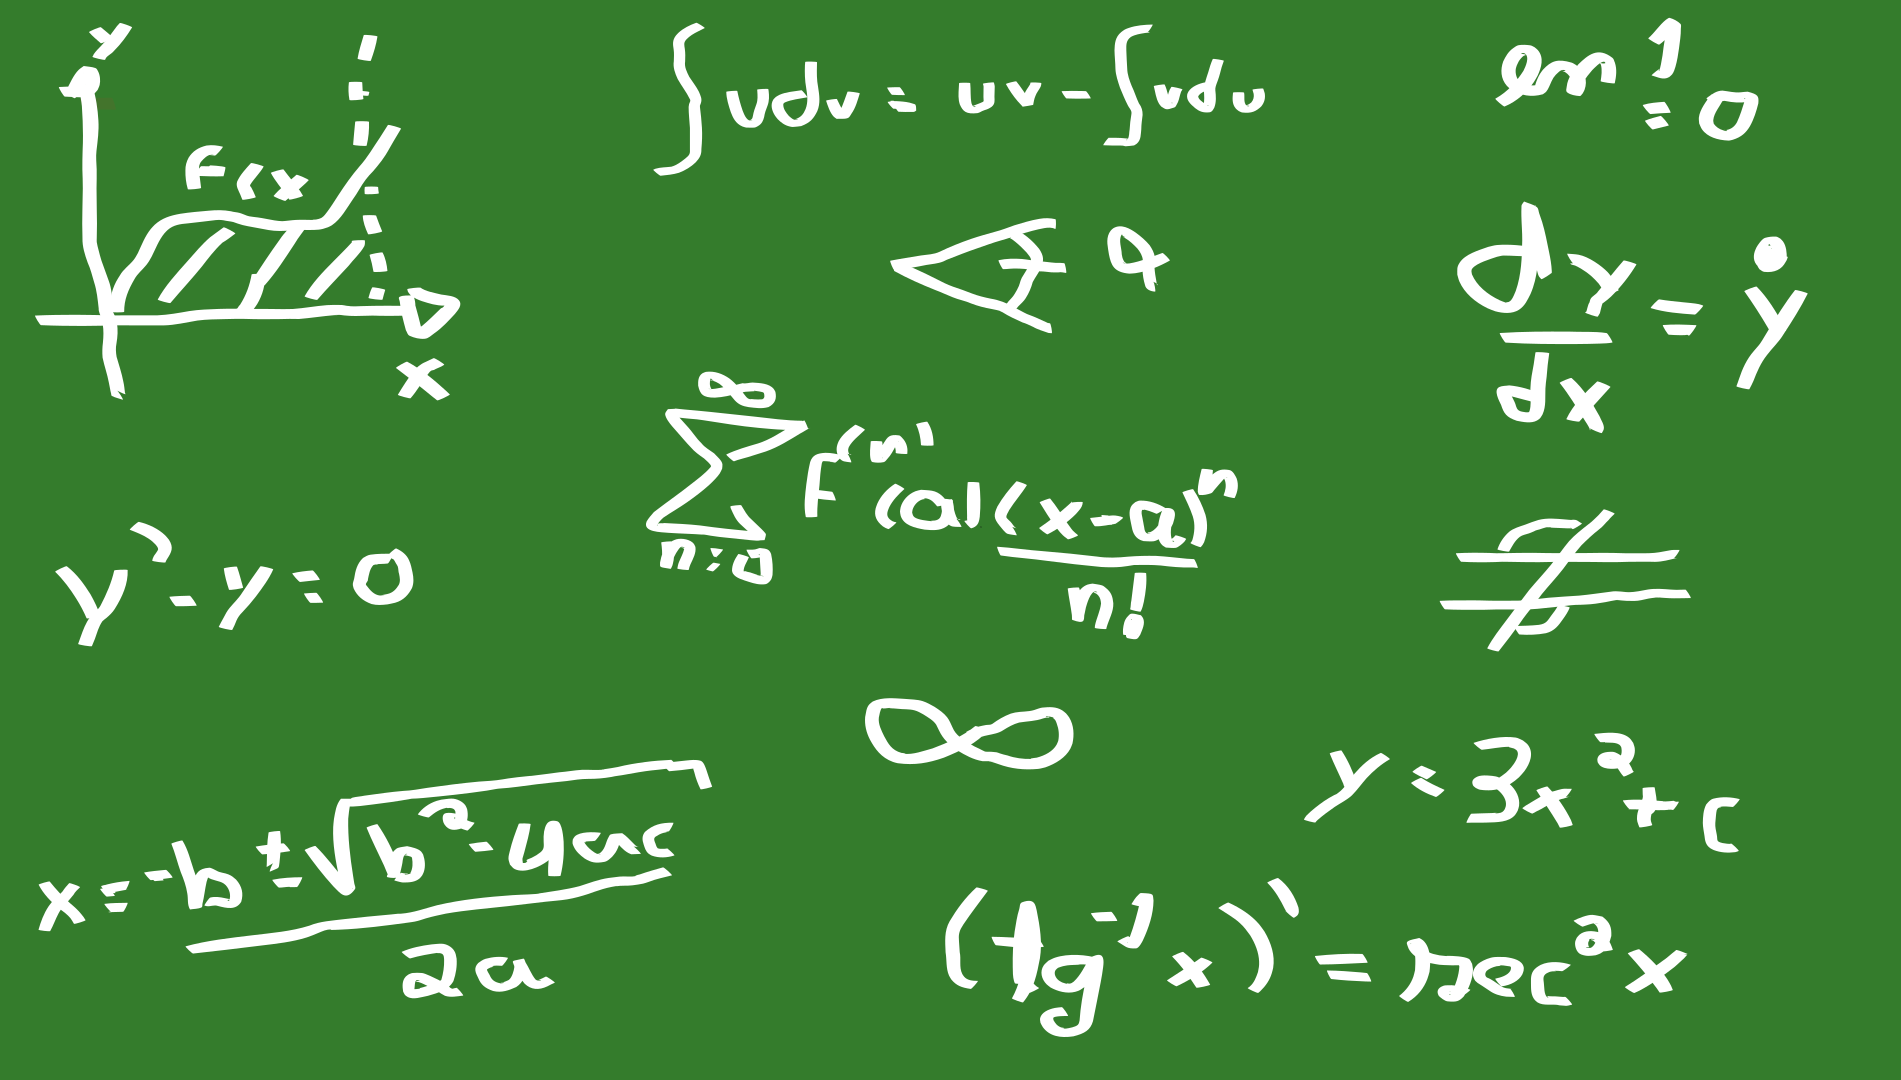 y
F(x
x
∫udv = uv - ∫vdu
ln 1 = 0
α
dy/dx = ẏ
∞
∑ F⁽ⁿ⁾(a)(x-a)ⁿ
n=0 n!
y' - y = 0
≠
∞
y = 3x² + c
x = -b ± √b² - 4ac
2a
(tg⁻¹x)' = sec²x